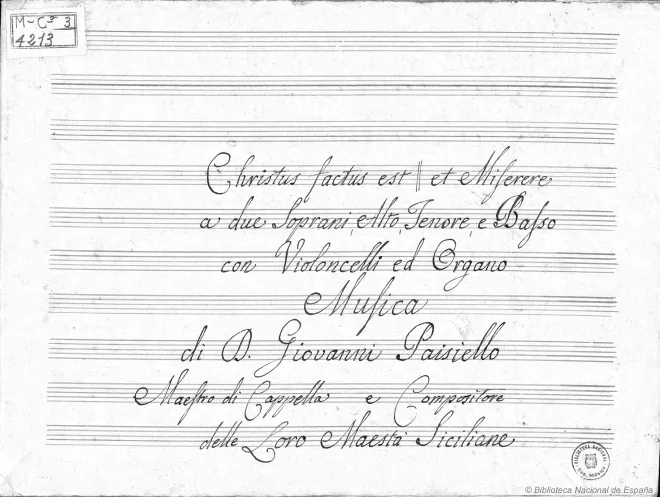 M-Cª 3
4213
Christus factus est || et Miserere
a due Soprani, Alto, Tenore, e Basso
con Violoncelli ed Organo
Musica
di D. Giovanni Paisiello
Maestro di Cappella e Compositore
delle Loro Maestà Siciliane
BIBLIOTECA NACIONAL
© Biblioteca Nacional de España